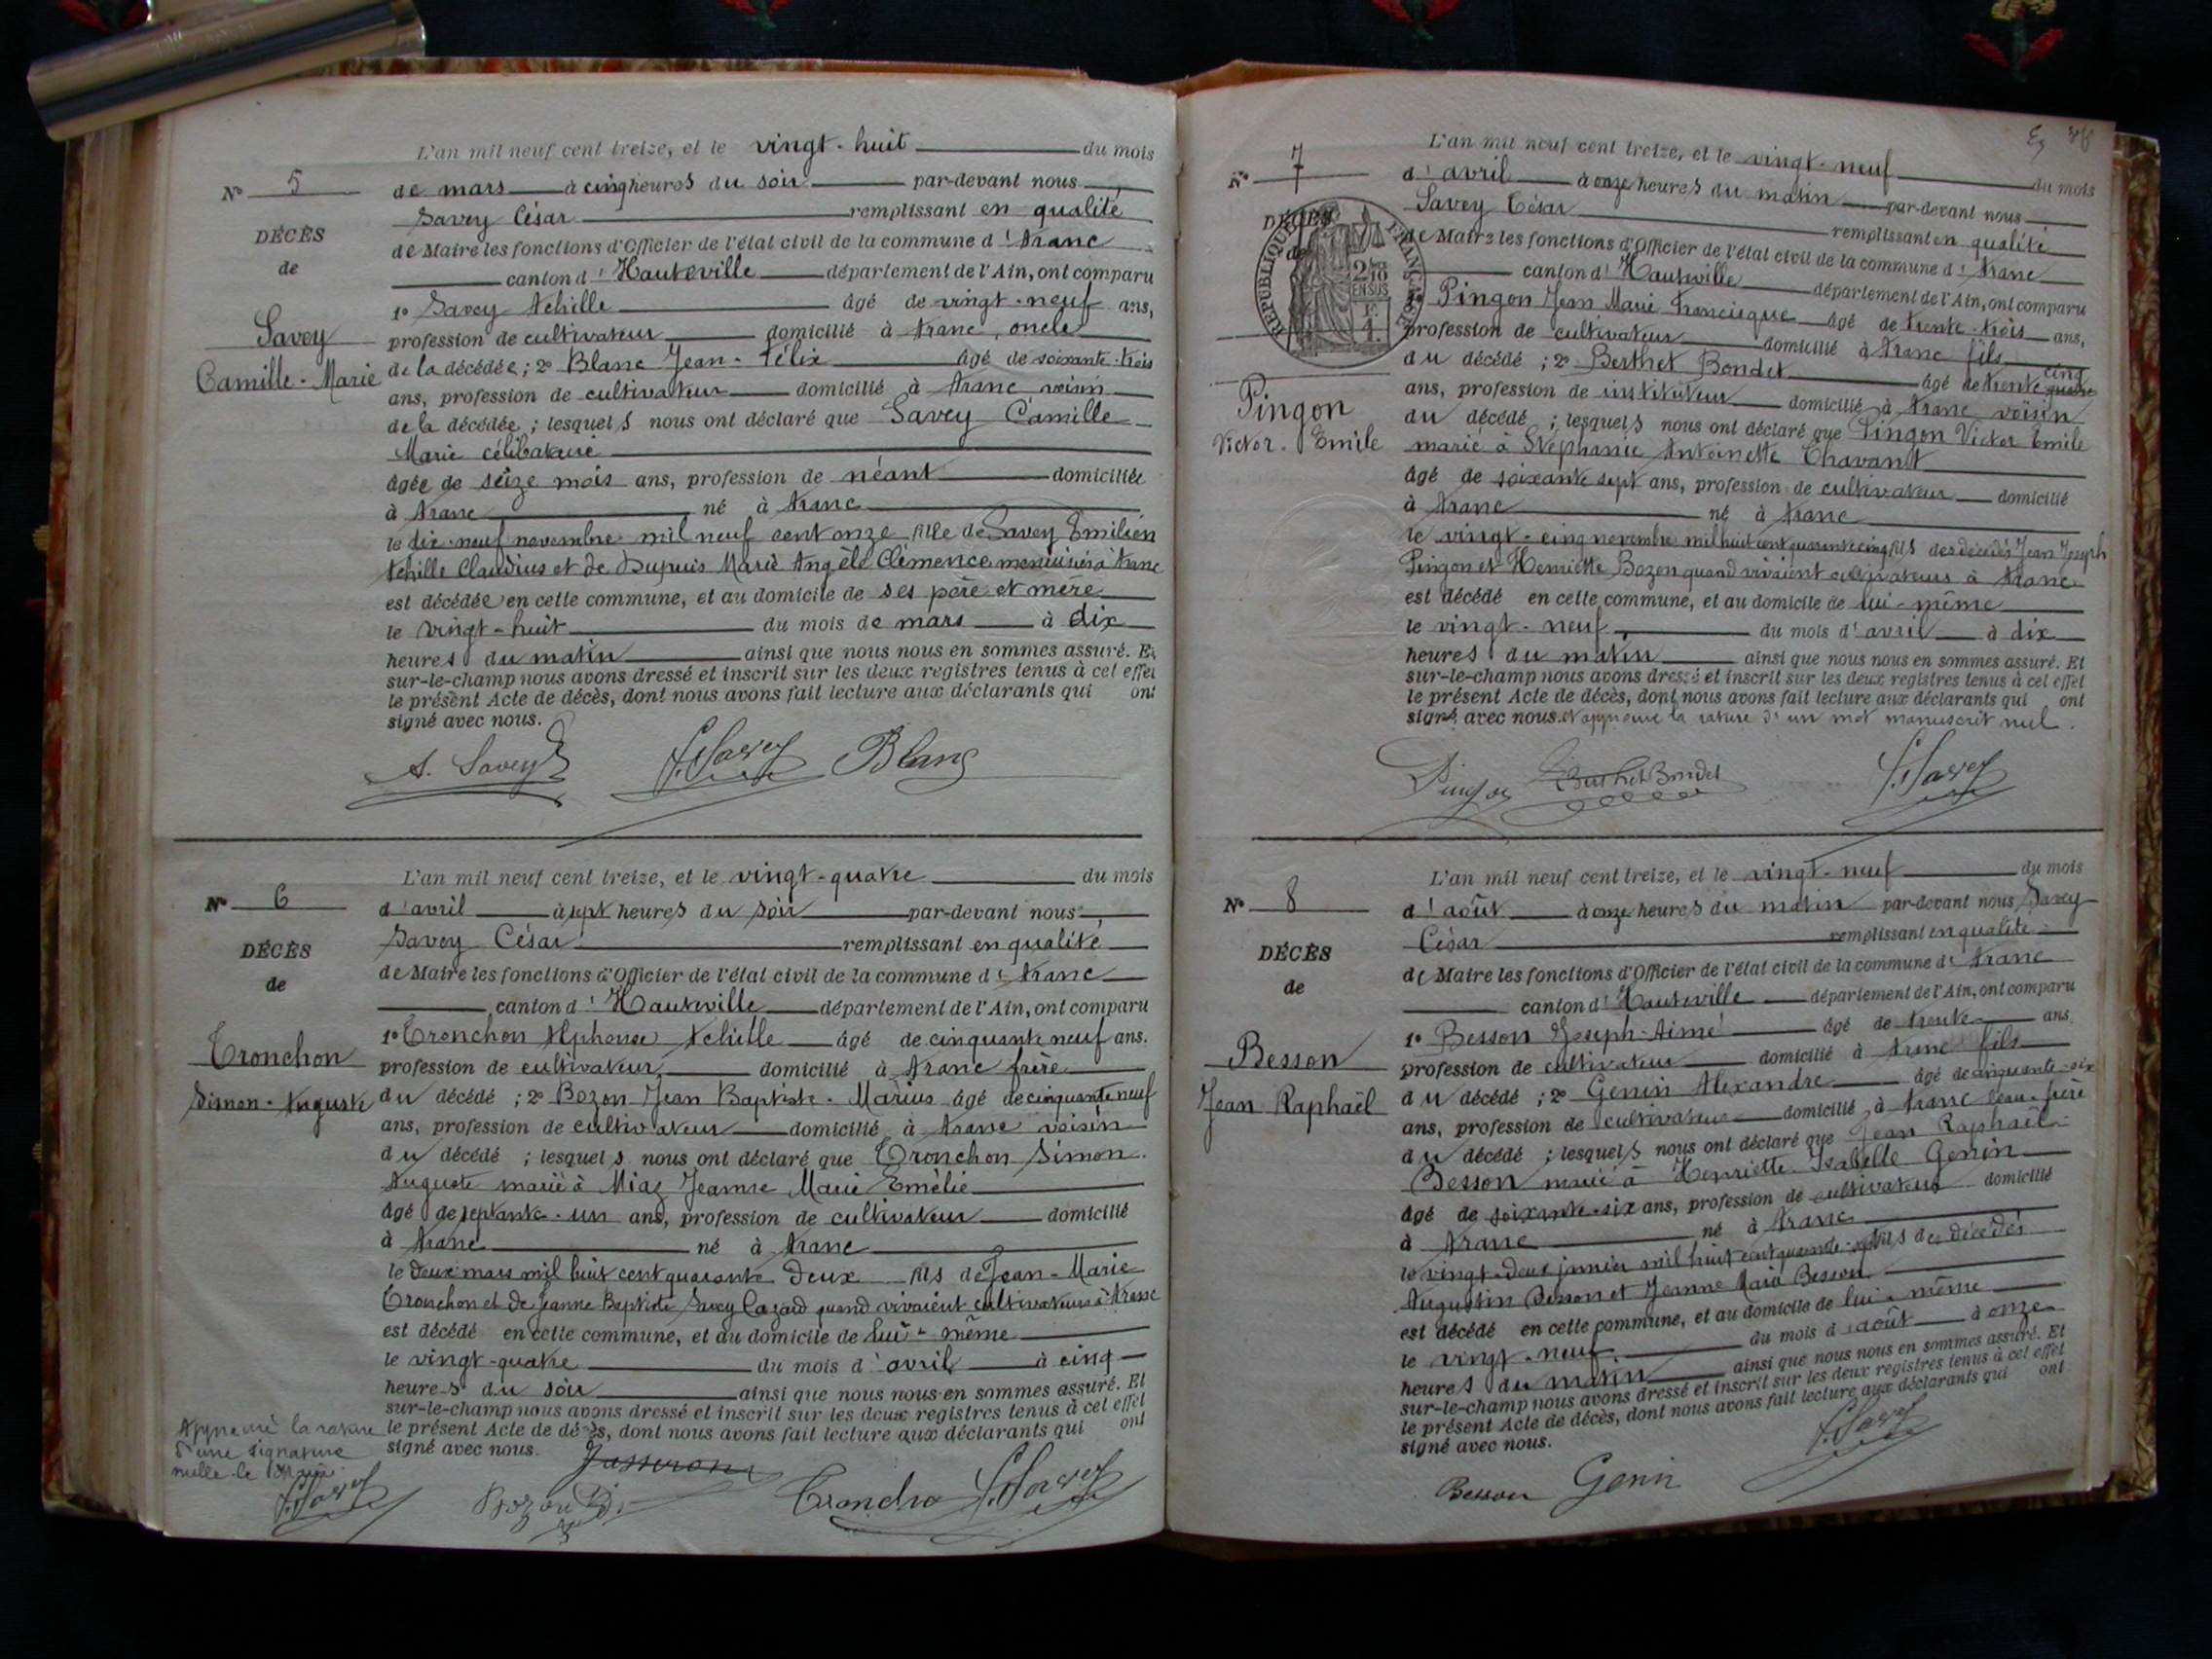 L'an mil neuf cent treize, et le vingt-huit du mois
N° 5
de mars à cinq heures du soir par-devant nous
Savey César remplissant en qualité
DÉCÈS
de Maire les fonctions d'Officier de l'état civil de la commune d'Aranc
de
canton d'Hauteville département de l'Ain, ont comparu
1° Savey Achille âgé de vingt-neuf ans,
Savey
profession de cultivateur domicilié à Aranc, oncle
Camille-Marie
de la décédée ; 2° Blanc Jean-Félix âgé de soixante-trois
ans, profession de cultivateur domicilié à Aranc voisin
de la décédée ; lesquels nous ont déclaré que Savey Camille
Marie célibataire
âgée de seize mois ans, profession de néant domiciliée
à Aranc né à Aranc
le dix-neuf novembre mil neuf cent onze fille de Savey Emilien
Achille Claudius et de Dupuis Marie Angèle Clémence menuisier à Aranc
est décédée en cette commune, et au domicile de ses père et mère
le vingt-huit du mois de mars à dix
heures du matin ainsi que nous nous en sommes assuré. Et
sur-le-champ nous avons dressé et inscrit sur les deux registres tenus à cet effet
le présent Acte de décès, dont nous avons fait lecture aux déclarants qui ont
signé avec nous.
A. Savey C. Savey Blanc
L'an mil neuf cent treize, et le vingt-quatre du mois
N° 6
d'avril à sept heures du soir par-devant nous
Savey César remplissant en qualité
DÉCÈS
de Maire les fonctions d'Officier de l'état civil de la commune d'Aranc
de
canton d'Hauteville département de l'Ain, ont comparu
1° Tronchon Alphonse Achille âgé de cinquante neuf ans.
Tronchon
profession de cultivateur domicilié à Aranc frère
Simon-Auguste
du décédé ; 2° Bozon Jean Baptiste-Marius âgé de cinquante neuf
ans, profession de cultivateur domicilié à Aranc voisin
du décédé ; lesquels nous ont déclaré que Tronchon Simon
Auguste marié à Miaz Jeanne Marie Emélie
âgé de septante-un ans, profession de cultivateur domicilié
à Aranc né à Aranc
le deux mars mil huit cent quarante deux fils de Jean-Marie
Tronchon et de Jeanne Baptiste Savey Cazard quand vivaient cultivateurs à Aranc
est décédé en cette commune, et au domicile de lui-même
le vingt-quatre du mois d'avril à cinq
heures du soir ainsi que nous nous en sommes assuré. Et
sur-le-champ nous avons dressé et inscrit sur les deux registres tenus à cet effet
le présent Acte de décès, dont nous avons fait lecture aux déclarants qui ont
signé avec nous.
Approuvé la rature
d'une signature
nulle. le Maire
C. Savey
Tronchon C. Savey
L'an mil neuf cent treize, et le vingt-neuf du mois
N° 7
d'avril à onze heures du matin par-devant nous
Savey César remplissant en qualité
DÉCÈS
de Maire les fonctions d'Officier de l'état civil de la commune d'Aranc
de
RÉPUBLIQUE FRANÇAISE
2/10 EN SUS
canton d'Hauteville département de l'Ain, ont comparu
1° Pingon Jean Marie Francisque âgé de trente-trois ans,
profession de cultivateur domicilié à Aranc fils
du décédé ; 2° Berthet Bondet âgé de trente quatre cinq
Pingon
Victor-Emile
ans, profession de instituteur domicilié à Aranc voisin
du décédé ; lesquels nous ont déclaré que Pingon Victor Emile
marié à Stéphanie Antoinette Chavant
âgé de soixante sept ans, profession de cultivateur domicilié
à Aranc né à Aranc
le vingt-cinq novembre mil huit cent quarante cinq fils des décédés Jean Joseph
Pingon et Henriette Bozon quand vivaient cultivateurs à Aranc
est décédé en cette commune, et au domicile de lui-même
le vingt-neuf du mois d'avril à dix
heures du matin ainsi que nous nous en sommes assuré. Et
sur-le-champ nous avons dressé et inscrit sur les deux registres tenus à cet effet
le présent Acte de décès, dont nous avons fait lecture aux déclarants qui ont
signé avec nous. et approuvé la rature d'un mot manuscrit nul.
Pingon Berthet Bondet C. Savey
L'an mil neuf cent treize, et le vingt-neuf du mois
N° 8
d'août à onze heures du matin par-devant nous Savey
César remplissant en qualité
DÉCÈS
de Maire les fonctions d'Officier de l'état civil de la commune d'Aranc
de
canton d'Hauteville département de l'Ain, ont comparu
1° Besson Joseph-Aimé âgé de trente ans.
Besson
profession de cultivateur domicilié à Aranc fils
Jean Raphaël
du décédé ; 2° Genin Alexandre âgé de cinquante-six
ans, profession de cultivateur domicilié à Aranc beau-frère
du décédé ; lesquels nous ont déclaré que Jean Raphaël
Besson marié à Henriette-Isabelle Genin
âgé de soixante-six ans, profession de cultivateur domicilié
à Aranc né à Aranc
le vingt-deux janvier mil huit cent quarante-sept fils des décédés
Augustin Besson et Jeanne Marie Besson
est décédé en cette commune, et au domicile de lui-même
le vingt-neuf du mois d'août à onze
heures du matin ainsi que nous nous en sommes assuré. Et
sur-le-champ nous avons dressé et inscrit sur les deux registres tenus à cet effet
le présent Acte de décès, dont nous avons fait lecture aux déclarants qui ont
signé avec nous.
Besson Genin C. Savey